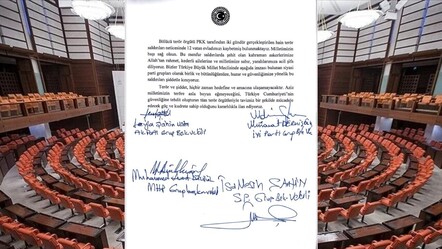 Bölücü terör örgütü PKK tarafından iki gündür gerçekleştirilen hain terör
saldırıları neticesinde 12 vatan evladımızı kaybetmiş bulunmaktayız. Milletimizin
başı sağ olsun. Bu menfur saldırılarda şehit olan kahraman askerlerimize
Allah'tan rahmet, kederli ailelerine ve milletimize sabır, yaralılarımıza acil şifa
diliyoruz. Bizler Türkiye Büyük Millet Meclisinde aşağıda imzası bulunan siyasi
parti grupları olarak birlik ve bütünlüğümüze, huzur ve güvenliğimize yönelik bu
saldırıları şiddetle kınıyoruz.
Terör ve şiddet, hiçbir zaman hedefine ve amacına ulaşamayacaktır. Aziz
milletimizin teröre asla boyun eğmeyeceğini, Türkiye Cumhuriyeti'nin
güvenliğine tehdit oluşturan tüm terör örgütleriyle tavizsiz bir şekilde mücadele
edecek güç ve kudrete sahip olduğunu kararlılıkla ilan ediyoruz.
Leyla Şahin Usta
Ak Parti Grup Bşk. Vekili
İyi Parti Grup Bşk. V.
Muhammed Levent Bülbül
MHP Grup Başkanvekili
İsa Mesih ŞAHİN
SP Grup Bşk. Vekili